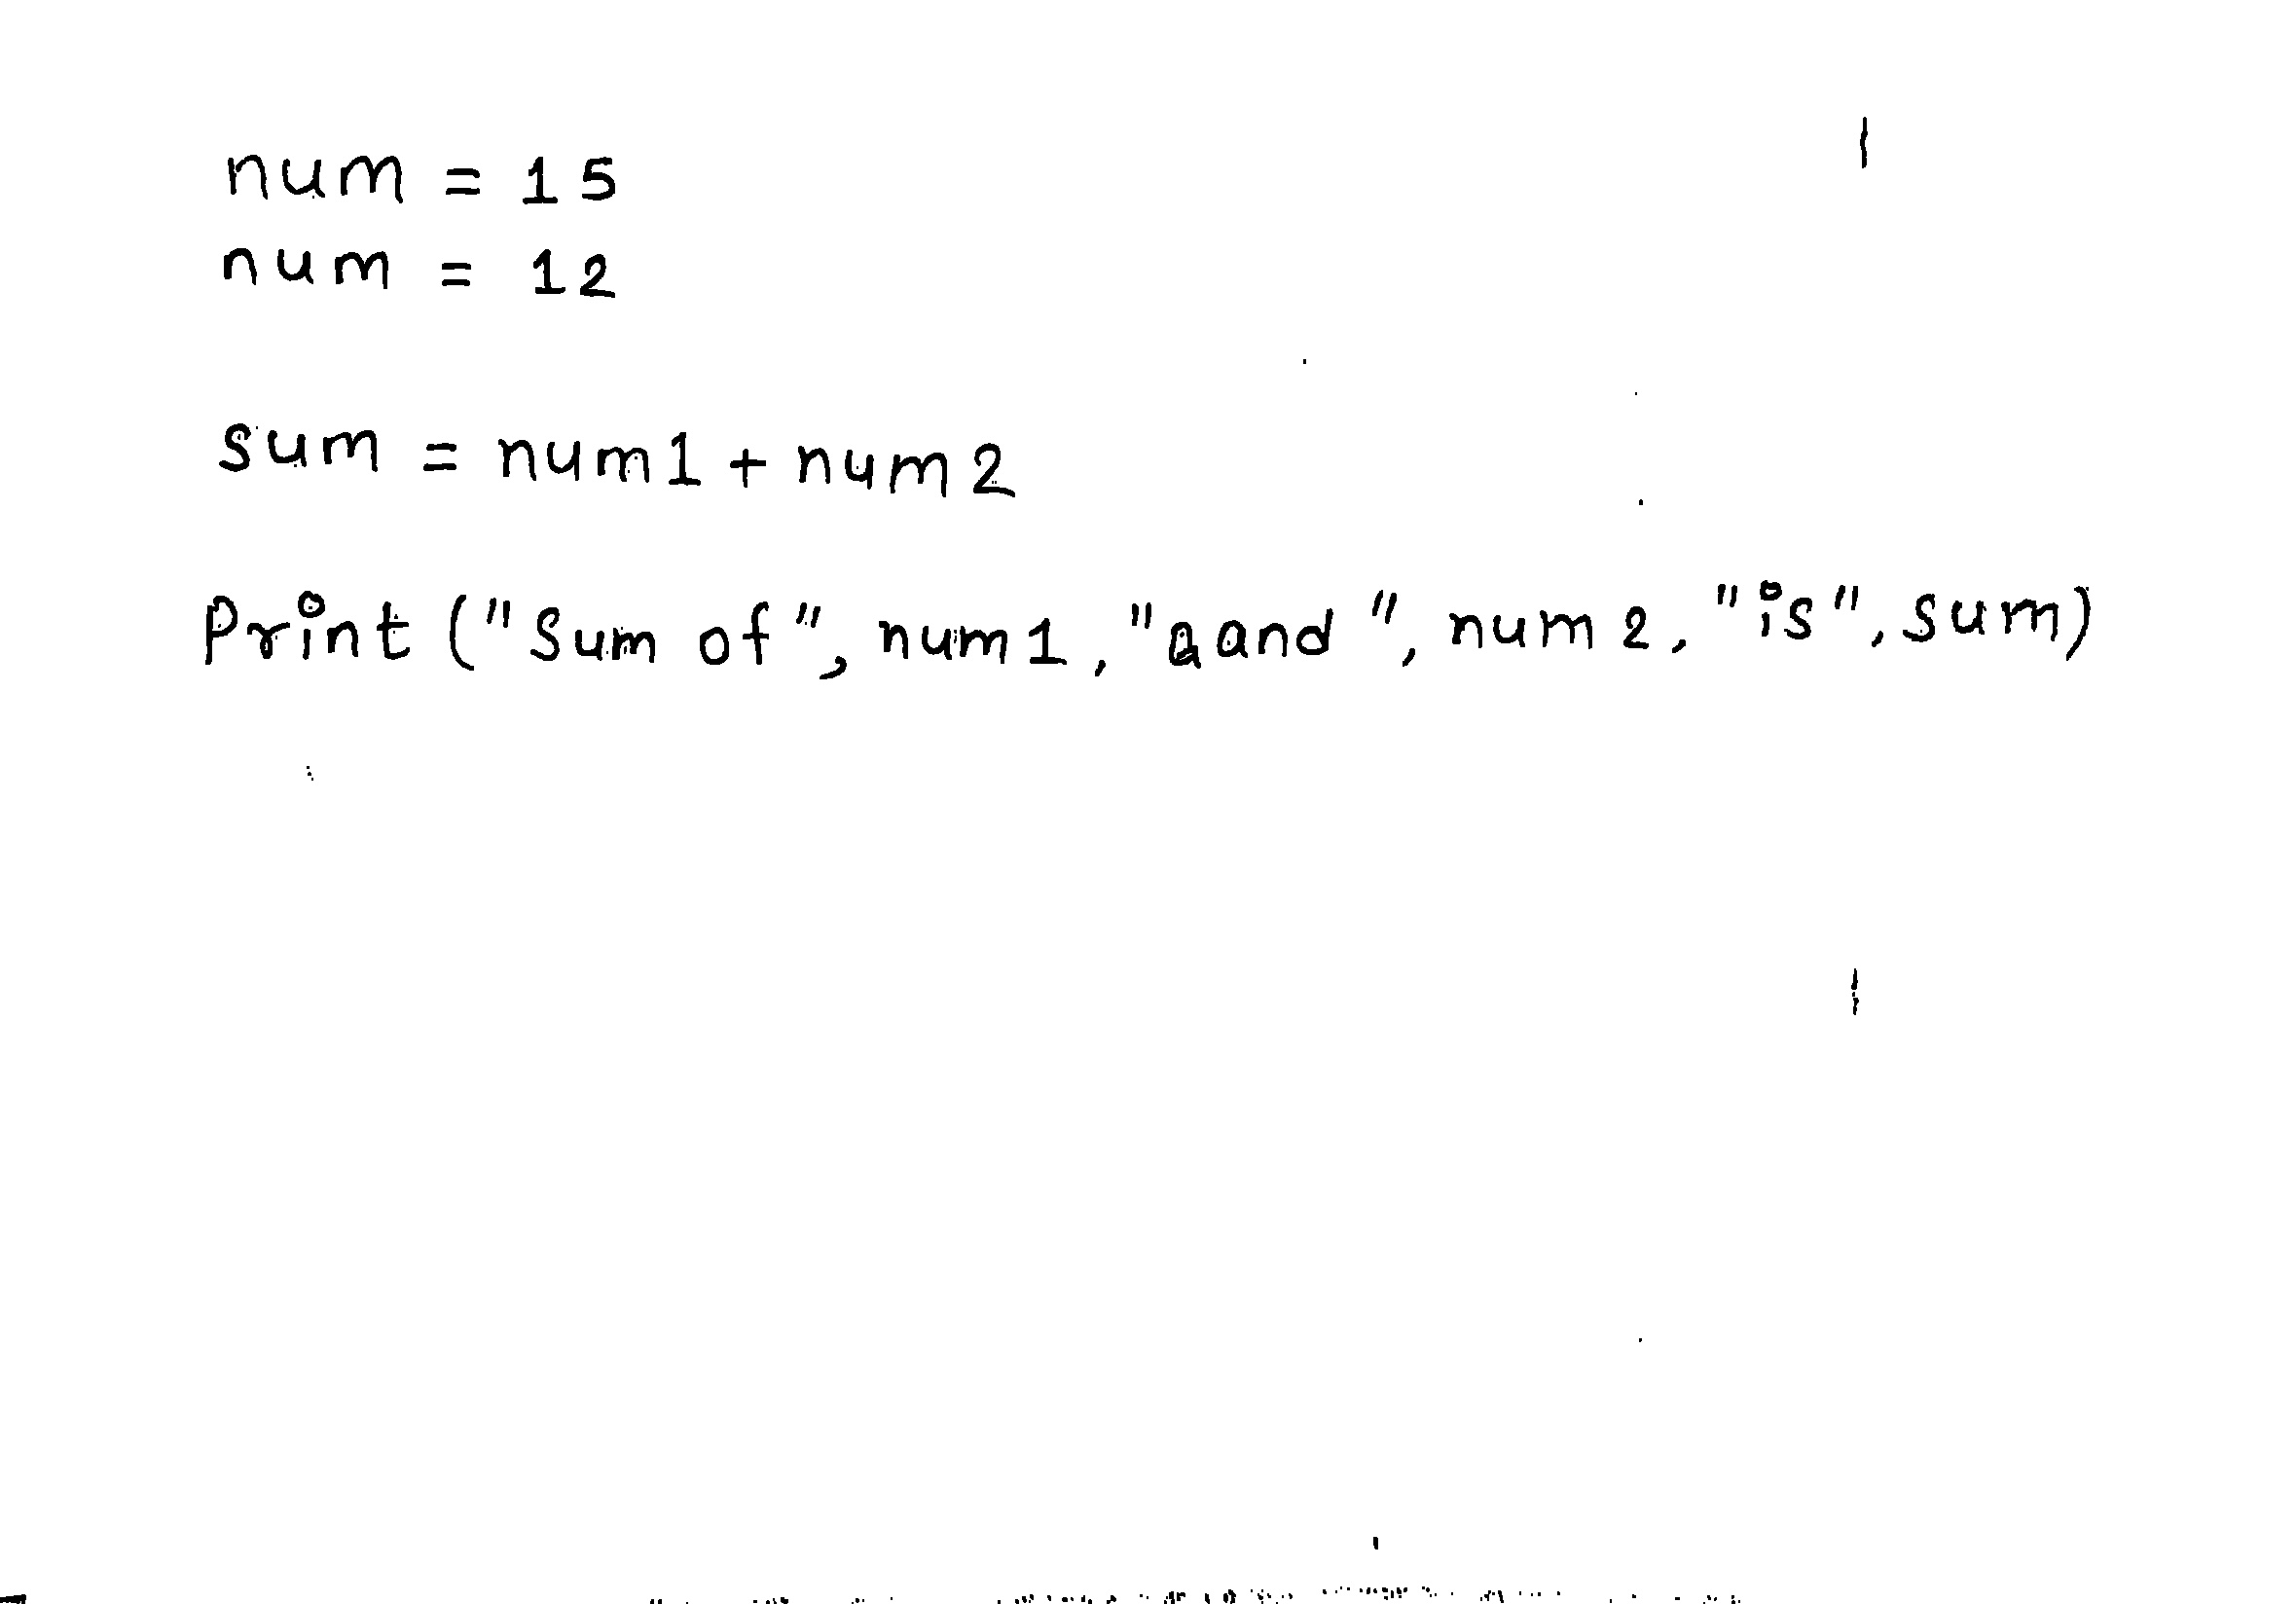 num = 15
num = 12
sum = num1 + num2
Print ("Sum of", num1, "aand", num2, "is", sum)